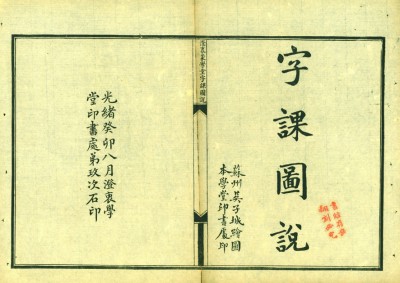 字課圖說
蘇州吳子城繪圖
本學堂印書處印
澄衷蒙學堂字課圖說
光緒癸卯八月澄衷學
堂印書處第玖次石印